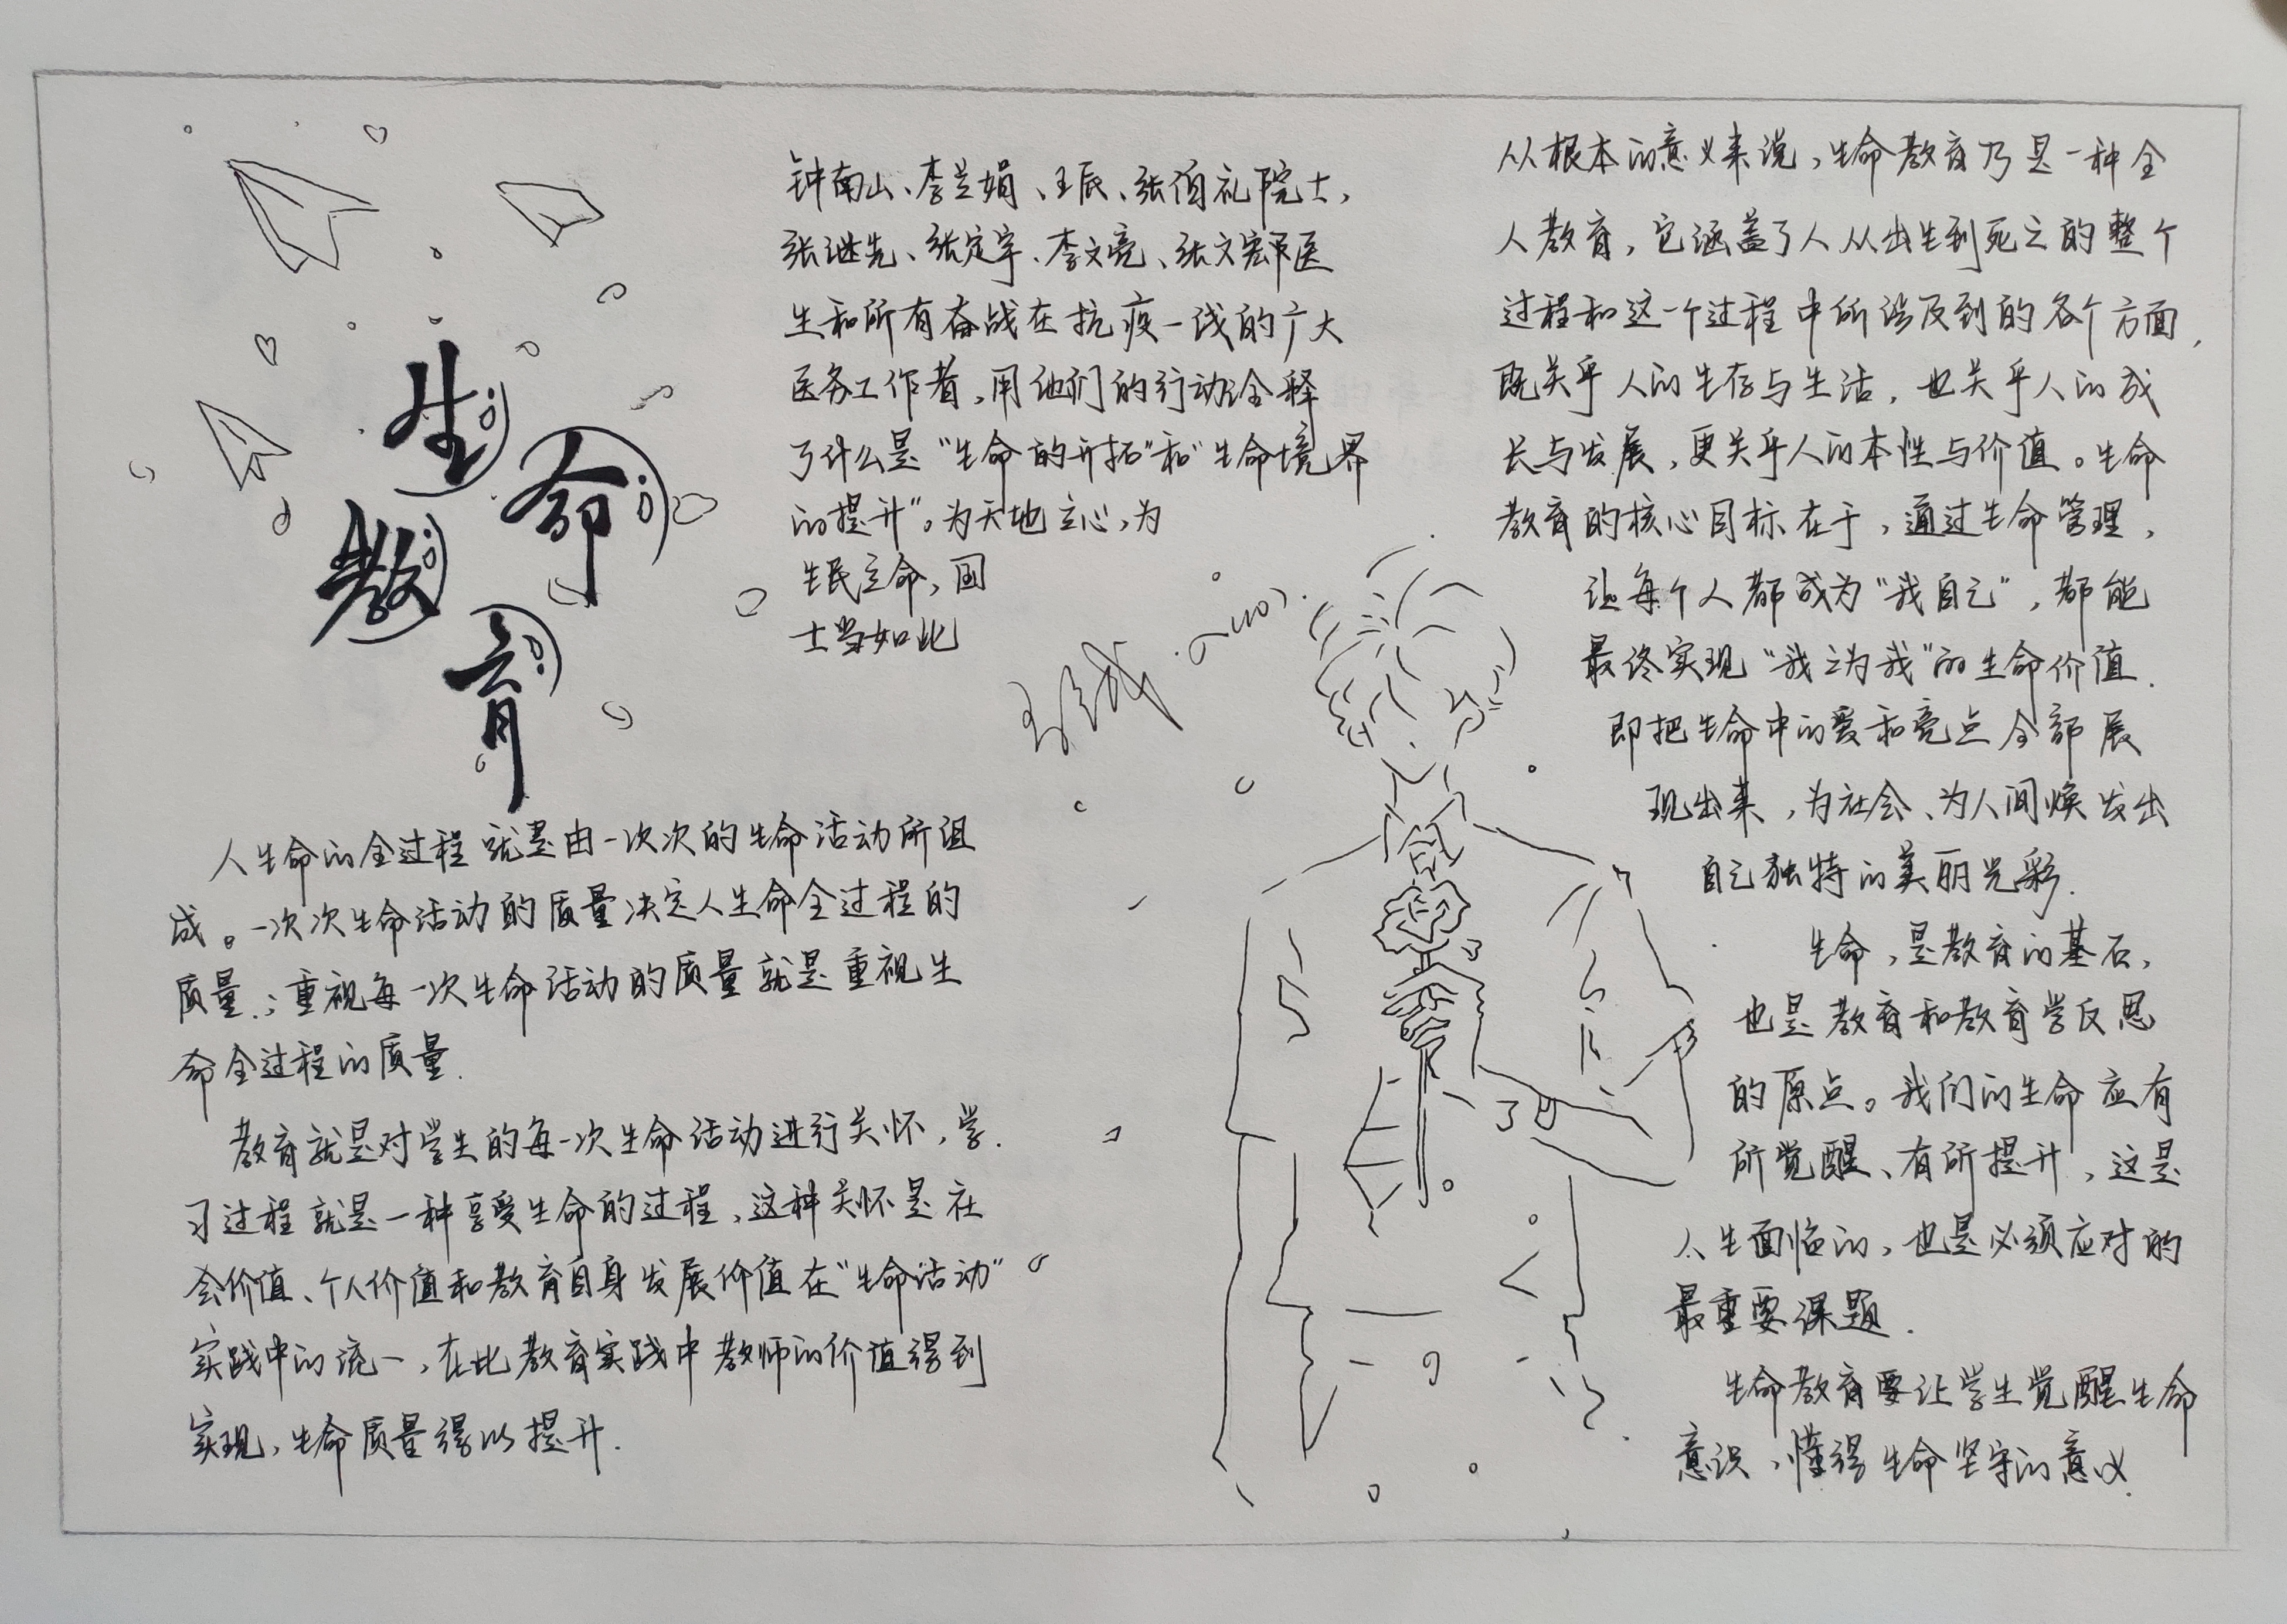 生命
教育
人生命的全过程就是由一次次的生命活动所组
成。一次次生命活动的质量决定人生命全过程的
质量.；重视每一次生命活动的质量就是重视生
命全过程的质量.
教育就是对学生的每一次生命活动进行关怀，学.
习过程就是一种享受生命的过程，这种关怀是在
会价值、个人价值和教育自身发展价值在“生命活动”
实践中的统一，在此教育实践中教师的价值得到
实现，生命质量得以提升.
钟南山、李兰娟、王辰、张伯礼院士，
张继先、张定宇、李文亮、张文宏医
生和所有奋战在抗疫一线的广大
医务工作者，用他们的行动诠释
了什么是“生命的开拓”和“生命境界
的提升”。为天地立心，为
生民立命，国
士当如此
从根本的意义来说，生命教育乃是一种全
人教育，它涵盖了人从出生到死亡的整个
过程和这一个过程中所涉及到的各个方面，
既关乎人的生存与生活，也关乎人的成
长与发展，更关乎人的本性与价值。生命
教育的核心目标在于，通过生命管理，
让每个人都成为“我自己”，都能
最终实现“我之为我”的生命价值.
即把生命中的爱和亮点全部展
现出来，为社会、为人间焕发出
自己独特的美丽光彩.
生命，是教育的基石，
也是教育和教育学反思
的原点。我们的生命应有
所觉醒、有所提升，这是
人生面临的，也是必须应对的
最重要课题.
生命教育要让学生觉醒生命
意识，懂得生命坚守的意义.